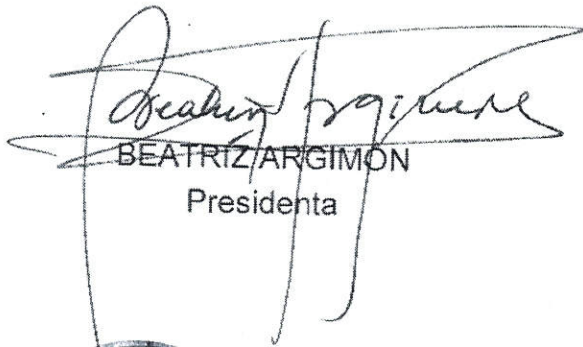 Beatriz Argimón
BEATRIZ ARGIMON
Presidenta